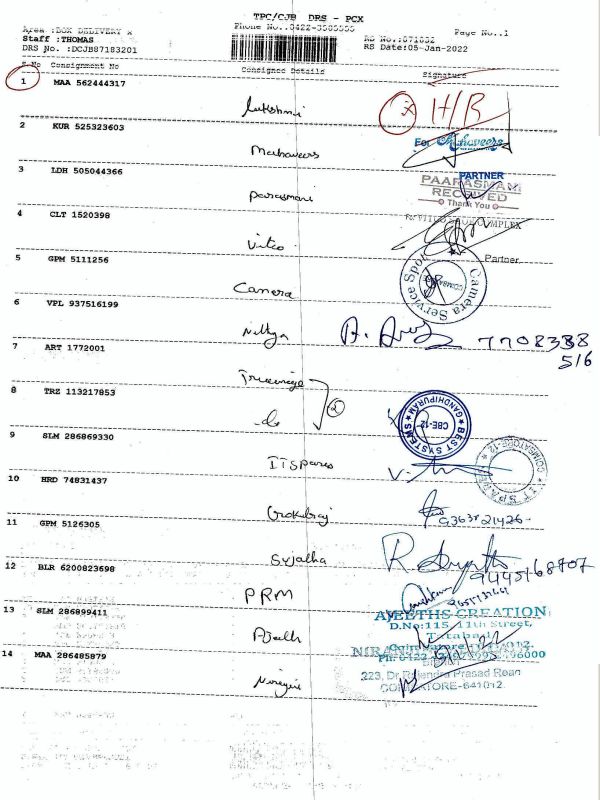 TPC/CJB DRS - PCX
Area :BOX DELIVERY W
Phone No..:0422-3585555
Page No..1
Staff :THOMAS
RS No.:871832
DRS No. :DCJB87183201
RS Date:05-Jan-2022
S.No Consignment No Consignee Details Signature
1 MAA 562444317
Lakshmi
H/B
2 KUR 525323603
For Mahaveers
Mahaveers
3 LDH 505044366
PARTNER
PAARASMANI
RECEIVED
Thank You
Parasmani
4 CLT 1520398
COMPLEX
Vitco
5 GPM 5111256
Partner
Camera Service Spot
Camera
6 VPL 937516199
Nithya
7708388
516
7 ART 1772001
8 TRZ 113217853
2
BEST SYSTEMS
GANDHIPURAM
CBE-12
do
9 SLM 286869330
COIMBATORE-12
IT SPARES
ITSpares
10 HRD 74831437
Gokulraj
11 GPM 5126305
Sujatha
12 BLR 6200823698
9445168907
PRM
13 SLM 286899411
AJEETHS CREATION
D.No:115, 11th Street,
Tatabad
Ajeeth
14 MAA 286485879
223, Dr. Rajendra Prasad Road
COIMBATORE-641012.